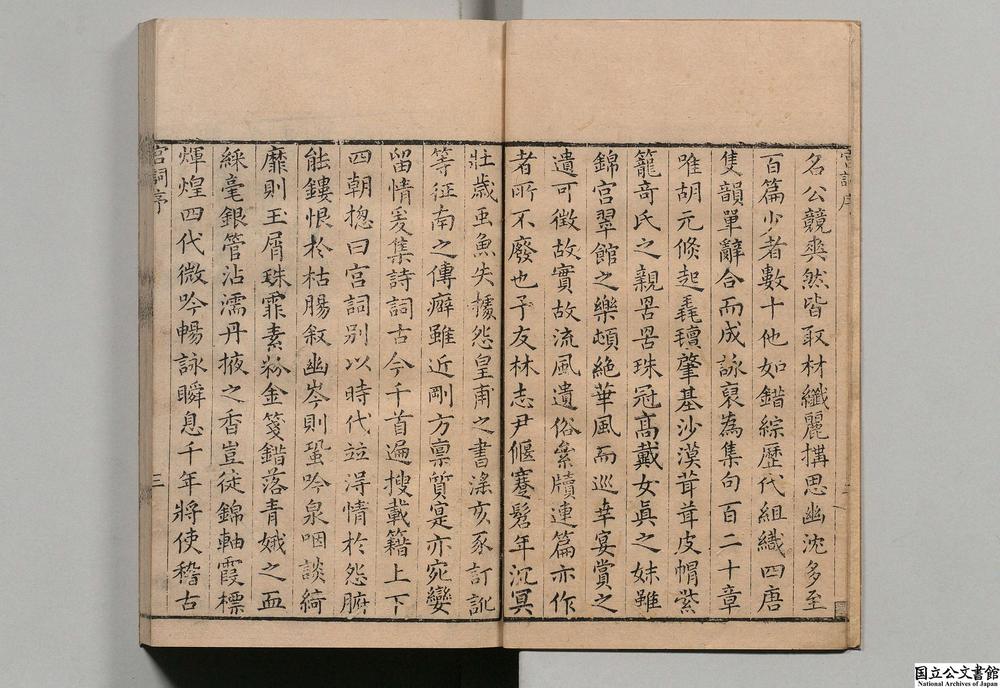 宮詞序
名公競爽然皆取材纖麗搆思幽沈多至
百篇少者數十他如錯綜歷代組織四唐
隻韻單辭合而成詠裒為集句百二十章
唯胡元倐起毳氊肇基沙漠茸茸皮帽紫
籠奇氏之親罟罟珠冠高戴女真之妹雖
錦宮翠館之樂頓絕華風而巡幸宴賞之
遺可徵故實故流風遺俗彖牘連篇亦作
者所不廢也予友林志尹偃蹇髫年沉冥
壯歲䖝魚失據怨皇甫之書淆亥豕訂訛
等征南之傳癖雖近剛方禀質寔亦宛孌
留情爰集詩詞古今千首遍搜載籍上下
四朝揔曰宮詞别以時代竝得情於怨腑
能鏤恨於枯腸叙幽岑則蛩吟泉咽談綺
靡則玉屑珠霏素粉金箋錯落青娥之面
綵毫銀管沾濡丹掖之香豈徒錦軸霞標
煇煌四代微吟暢詠瞬息千年將使稽古
宮詞序
三
国立公文書館
National Archives of Japan